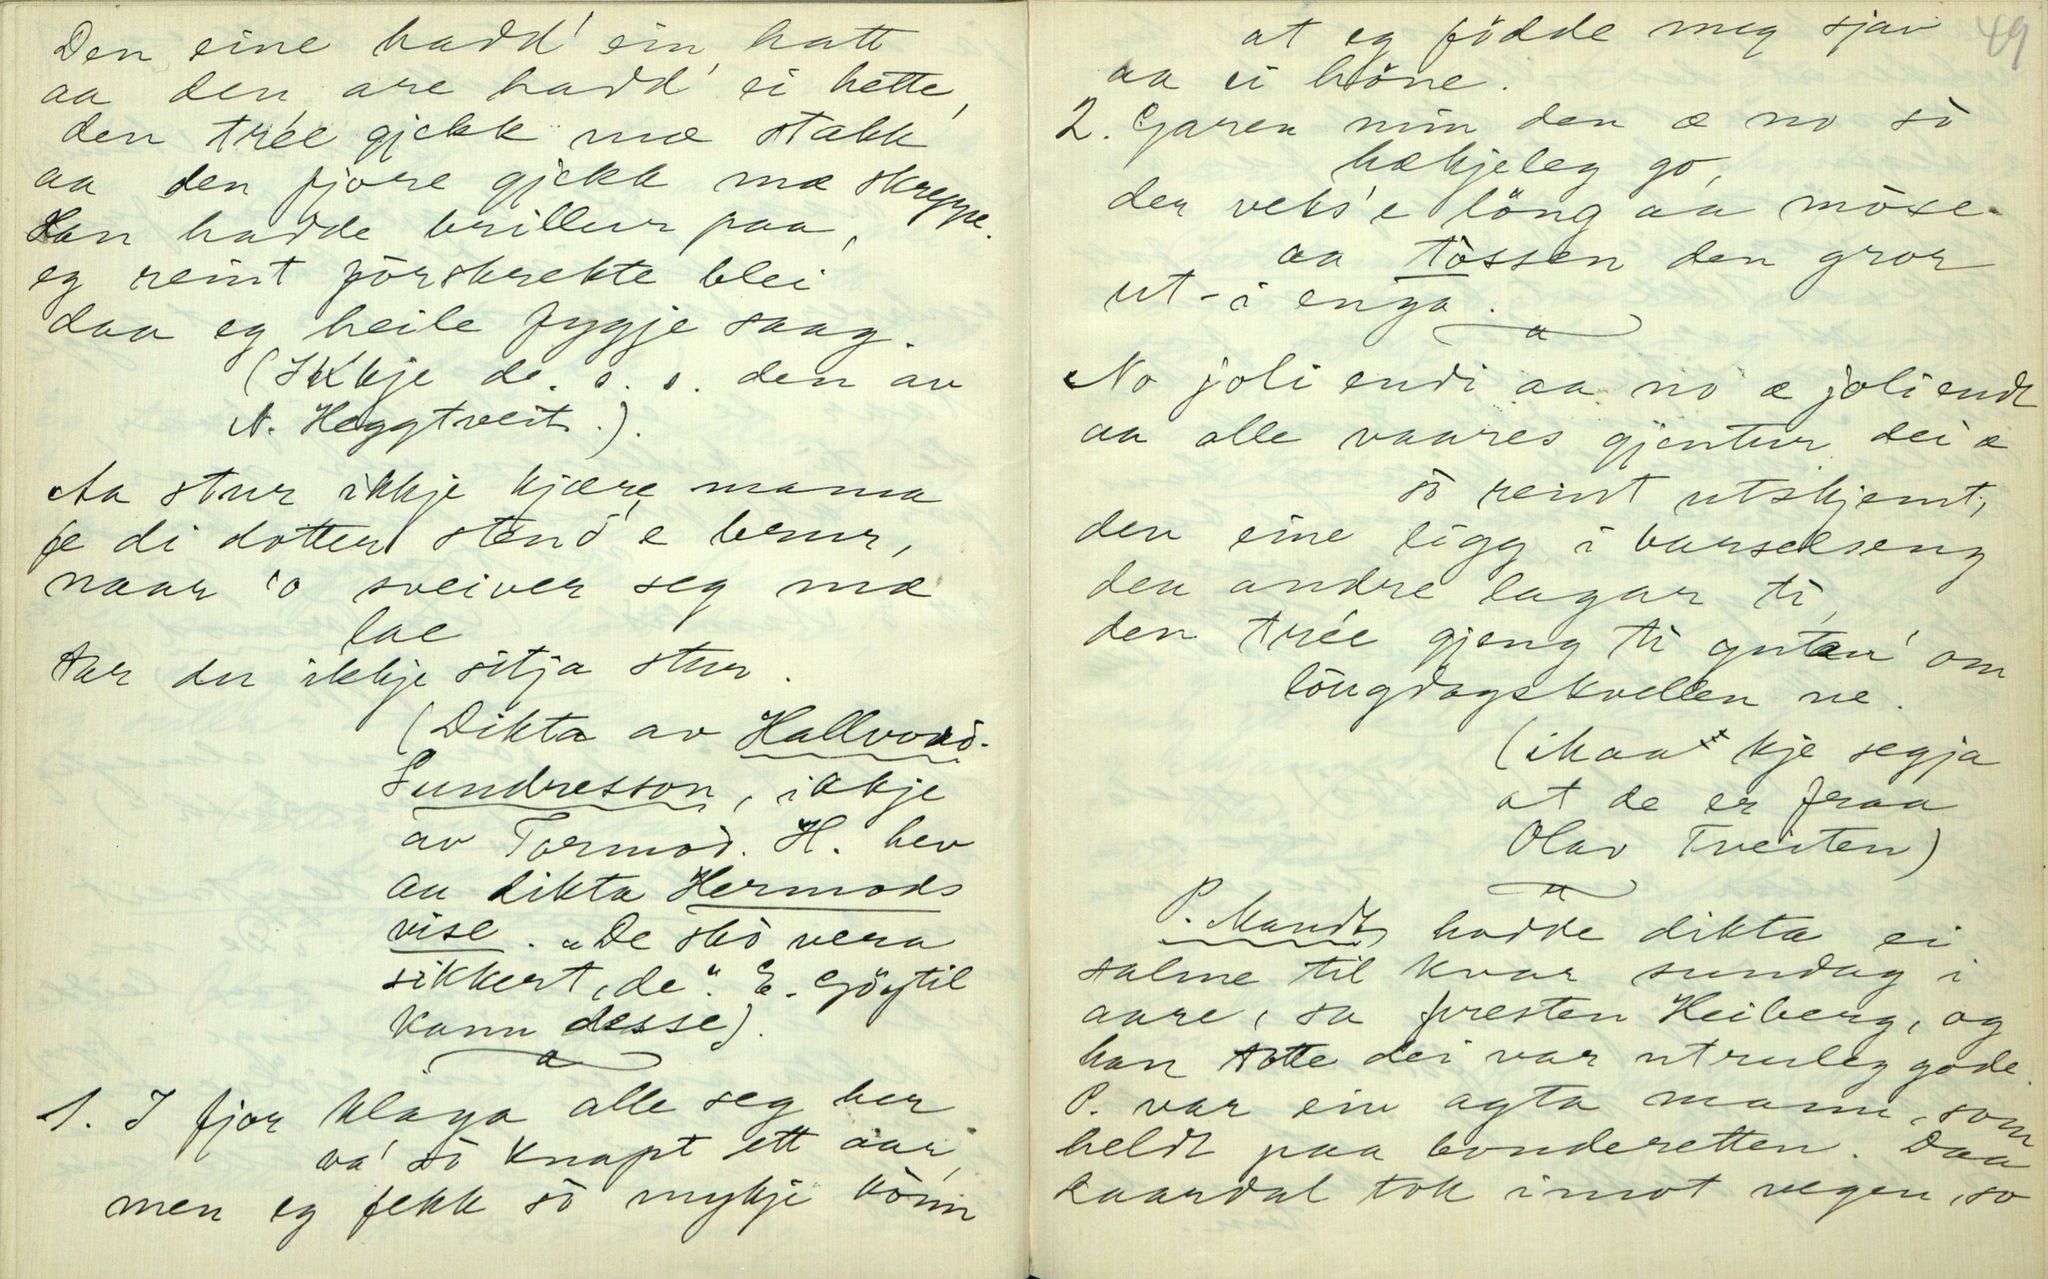 Den eine hadd' ein hatt
aa den are hadd' ei hette,
den trée gjekk mæ stakk
aa den fjore gjekk mæ skreppe.
Han hadde brillur paa,
eg reint förskrekte blei
daa eg heile fygje saag.
(Ikkje de. s. s. den av
N. Heggtveit.).
Aa stur ikkje kjære mama
fe di dotter stend'e brur,
naar 'o sveiver seg mæ
lae
tar du ikkje sitja stur.
(Dikta av Hallvord
Sundresson, ikkje
av Tormod. H. hev
au dikta Hermods
vise. „De skò vera
sikkert, de". E. Göytil
kann desse).
1. I fjor klaga alle seg her
va' sò knapt ett aar,
men eg fekk sò mykje könn
49
at eg födde meg sjav
aa ei höne.
2. Garen min den æ no sò
hækjeleg go,
der veks'e löng aa möse
aa tössen den gror
ut-i enga.
No joli endi aa no æ joli endt
aa alle vaares gjentur dei æ
sò reint utskjemt,
den eine ligg i barselseng
den andre lagar ti,
den trée gjeng ti gutan' om
löugdagskvellen ne.
(ikaa kje segja
at de er fraa
Olav Tveiten)
P. Mandt hadde dikta ei
salme til kvar sundag i
aare, sa presten Heiberg, og
han totte dei var utruleg gode.
P. var ein agta mann, som
heldt paa bonderetten. Daa
Laardal tok imot vegen, so